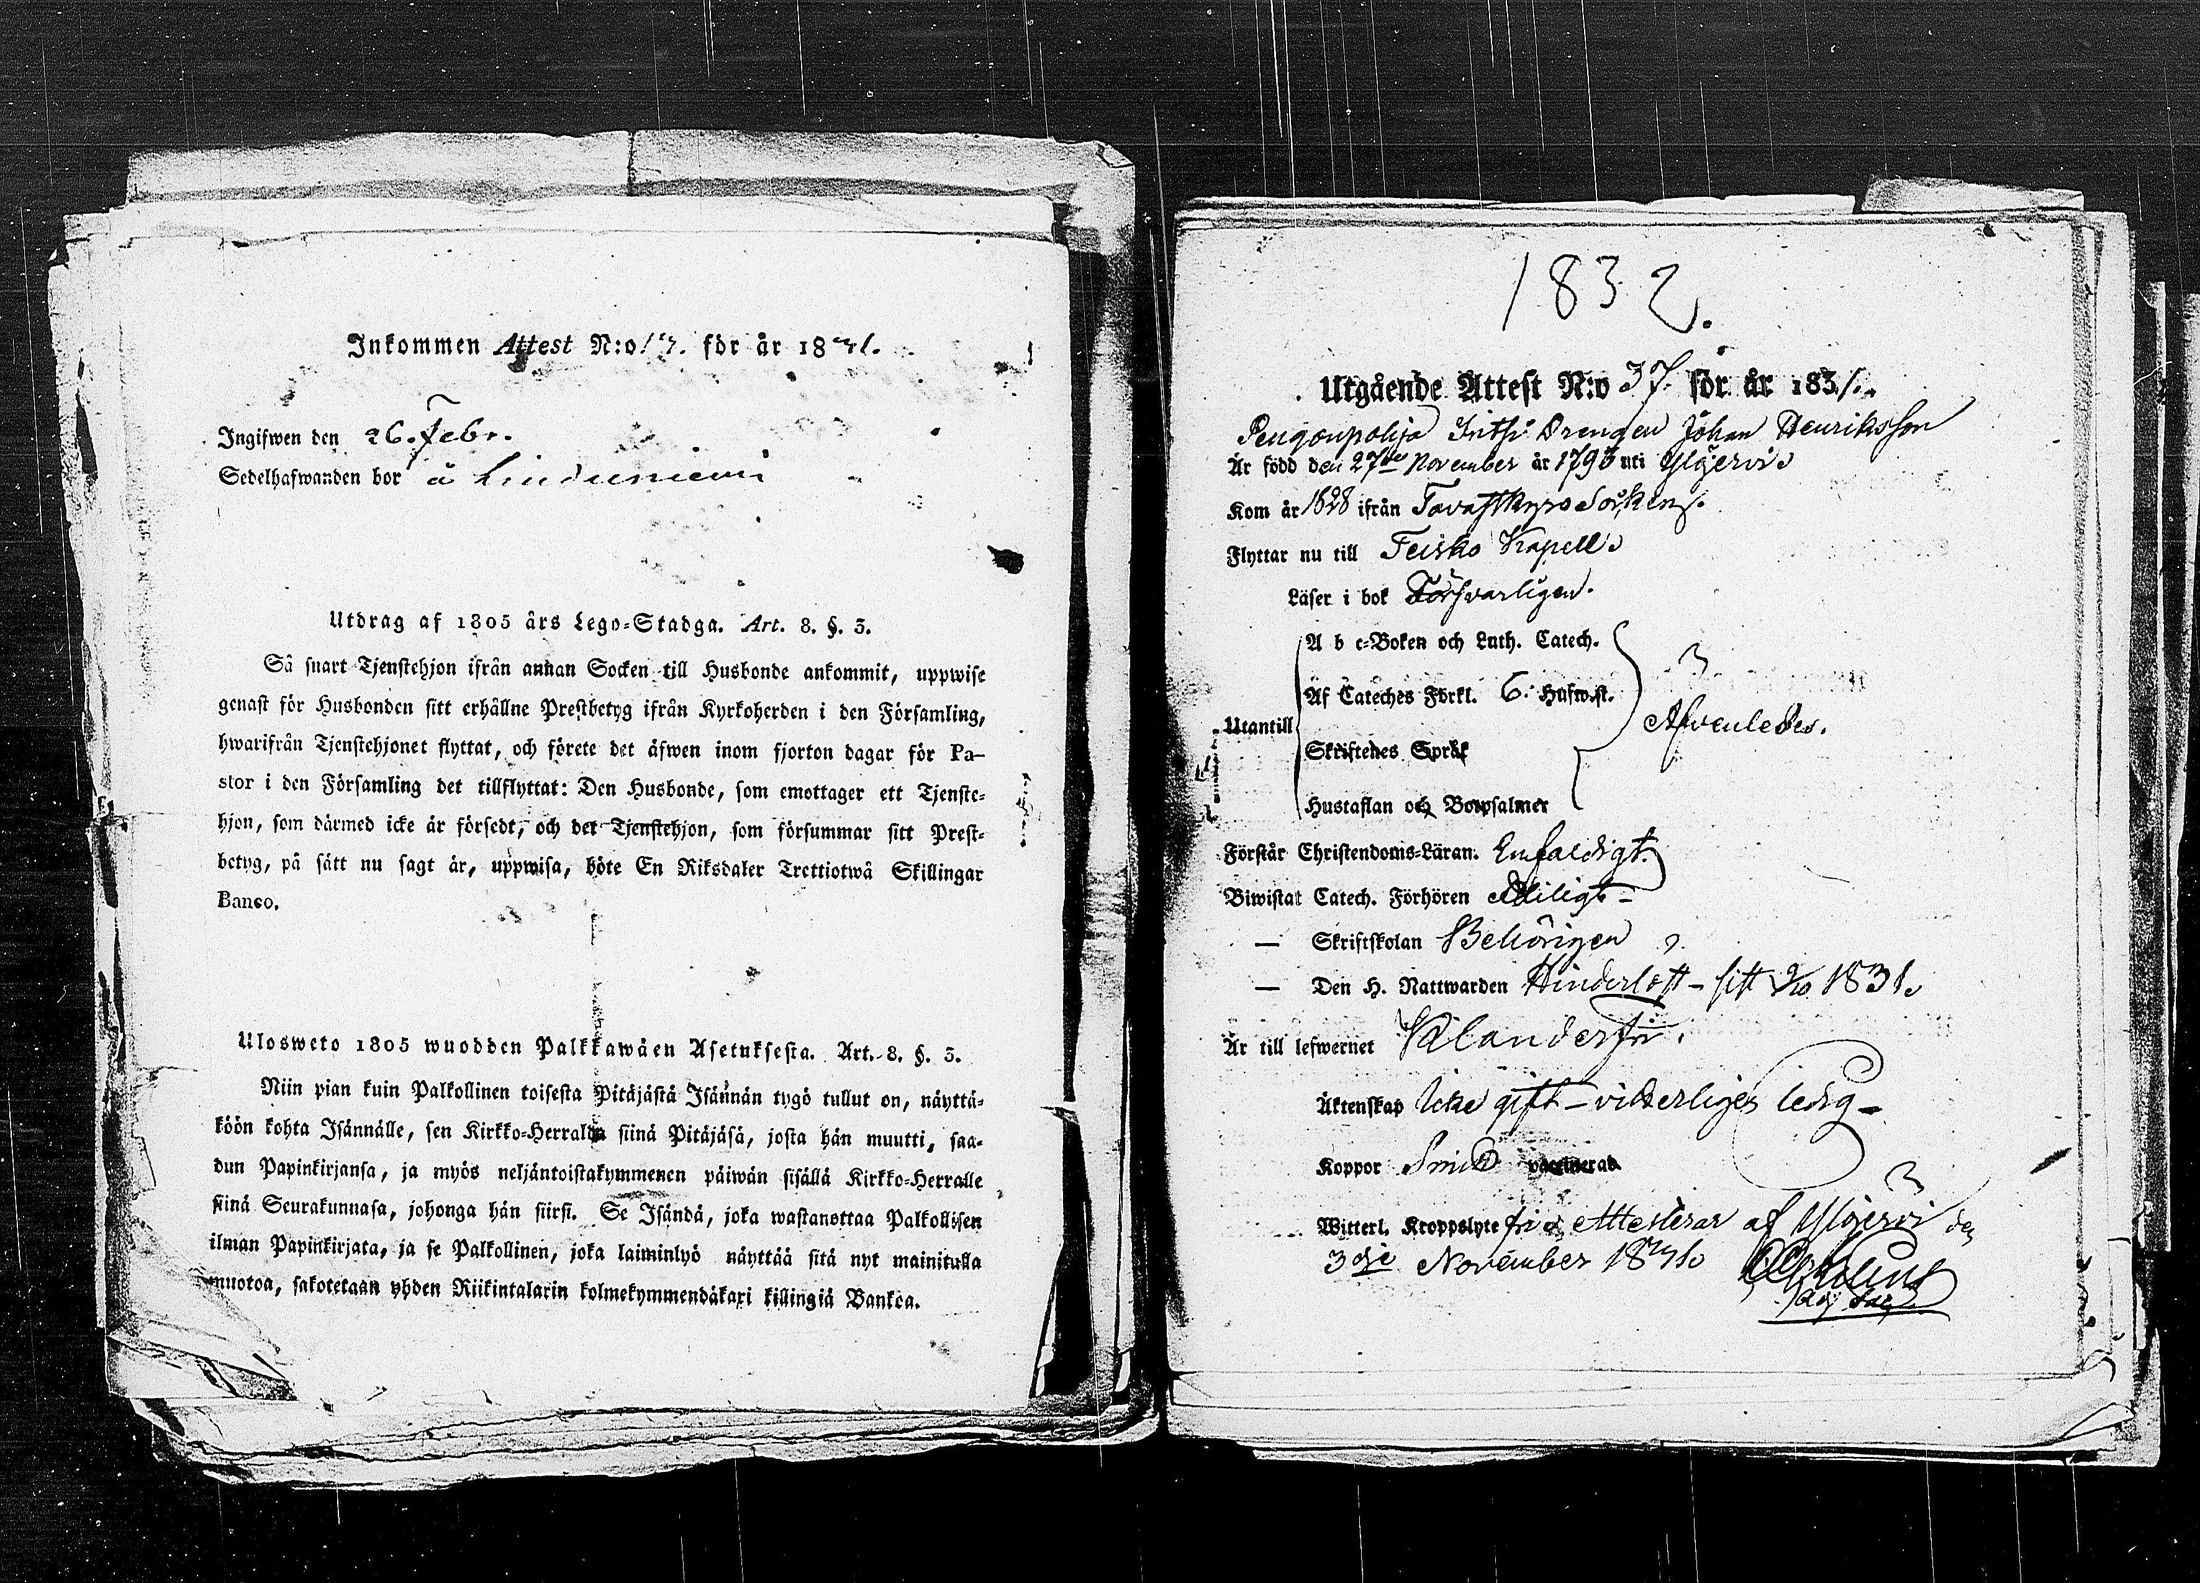 Inkommen Attest N:o 13. för år 1831.
Ingifwen den 26. Febr.
Sedelhafwanden bor å Linduniemi
Utdrag af 1805 års Lego-Stadga. Art. 8. §. 3.
Så snart Tjenstehjon ifrån annan Socken till Husbonde ankommit, uppwise
genast för Husbonden sitt erhållne Prestbetyg ifrån Kyrkoherden i den Församling,
hwarifrån Tjenstehjonet flyttat, och förete det äfwen inom fjorton dagar för Pa-
stor i den Församling det tillflyttat: Den Husbonde, som emottager ett Tjenste-
hjon, som därmed icke är försedt, och det Tjenstehjon, som försummar sitt Prest-
betyg, på sätt nu sagt är, uppwisa, böte En Riksdaler Trettiotwå Skillingar
Banco.
Ulosweto 1805 wuodden Palkkawäen Asetuksesta. Art. 8. §. 3.
Niin pian kuin Palkollinen toisesta Pitäjästä Isännän tygö tullut on, näyttä-
köön kohta Isännälle, sen Kirkko-Herralda siinä Pitäjäsä, josta hän muutti, saa-
dun Papinkirjansa, ja myös neljäntoistakymmenen päiwän sisällä Kirkko-Herralle
siinä Seurakunnasa, johonga hän siirsi. Se Isändä, joka wastanottaa Palkollisen
ilman Papinkirjata, ja se Palkollinen, joka laiminlyö näyttää sitä nyt mainitulla
muotoa, sakotetaan yhden Riikintalarin kolmekymmendäkaxi killingiä Bankoa.
1832.
Utgående Attest N:o 37. för år 1831.
Drengen Johan Henriksson
Är född den 27de November år 1793 uti Ylöjervi
Kom år 1828 ifrån Tavastkyro Socken.
Flyttar nu till Teisko Kapell
Läser i bok Försvarligen.
A b c-Boken och Luth. Catech.
Af Cateches Förkl. 6. Hufwst.
Utantill
Äfvenledes.
Skriftenes Språk
Hustaflan och Botpsalmer
Förstår Christendoms-Läran. Enfaldigt.
Biwistat Catech. Förhören Flitigt -
— Skriftskolan Behörigen
— Den H. Nattwarden Hinderlöst - sist 2/10 1831.
Är till lefwernet Klanderfri.
Äktenskap Icke gift - vitterligen ledig -
Koppor vaccinerad
Witterl. Kroppslyte fri Attesterar af Ylöjervi den
3dje November 1831.